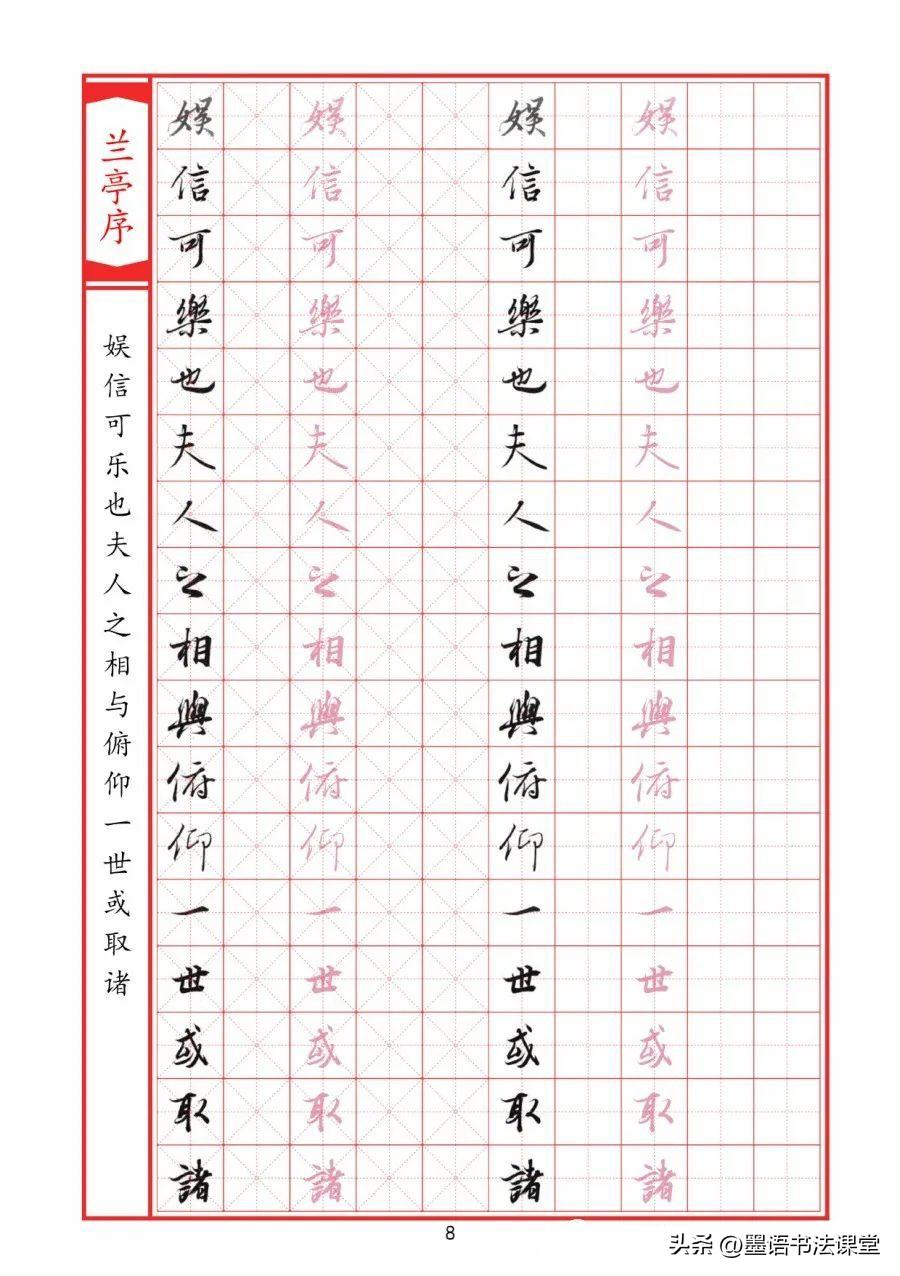 兰亭序
娱信可乐也夫人之相与俯仰一世或取诸
娱信可樂也夫人之相與俯仰一世或取諸
娱信可樂也夫人之相與俯仰一世或取諸
娱信可樂也夫人之相與俯仰一世或取諸
娱信可樂也夫人之相與俯仰一世或取諸
8
头条 @墨语书法课堂